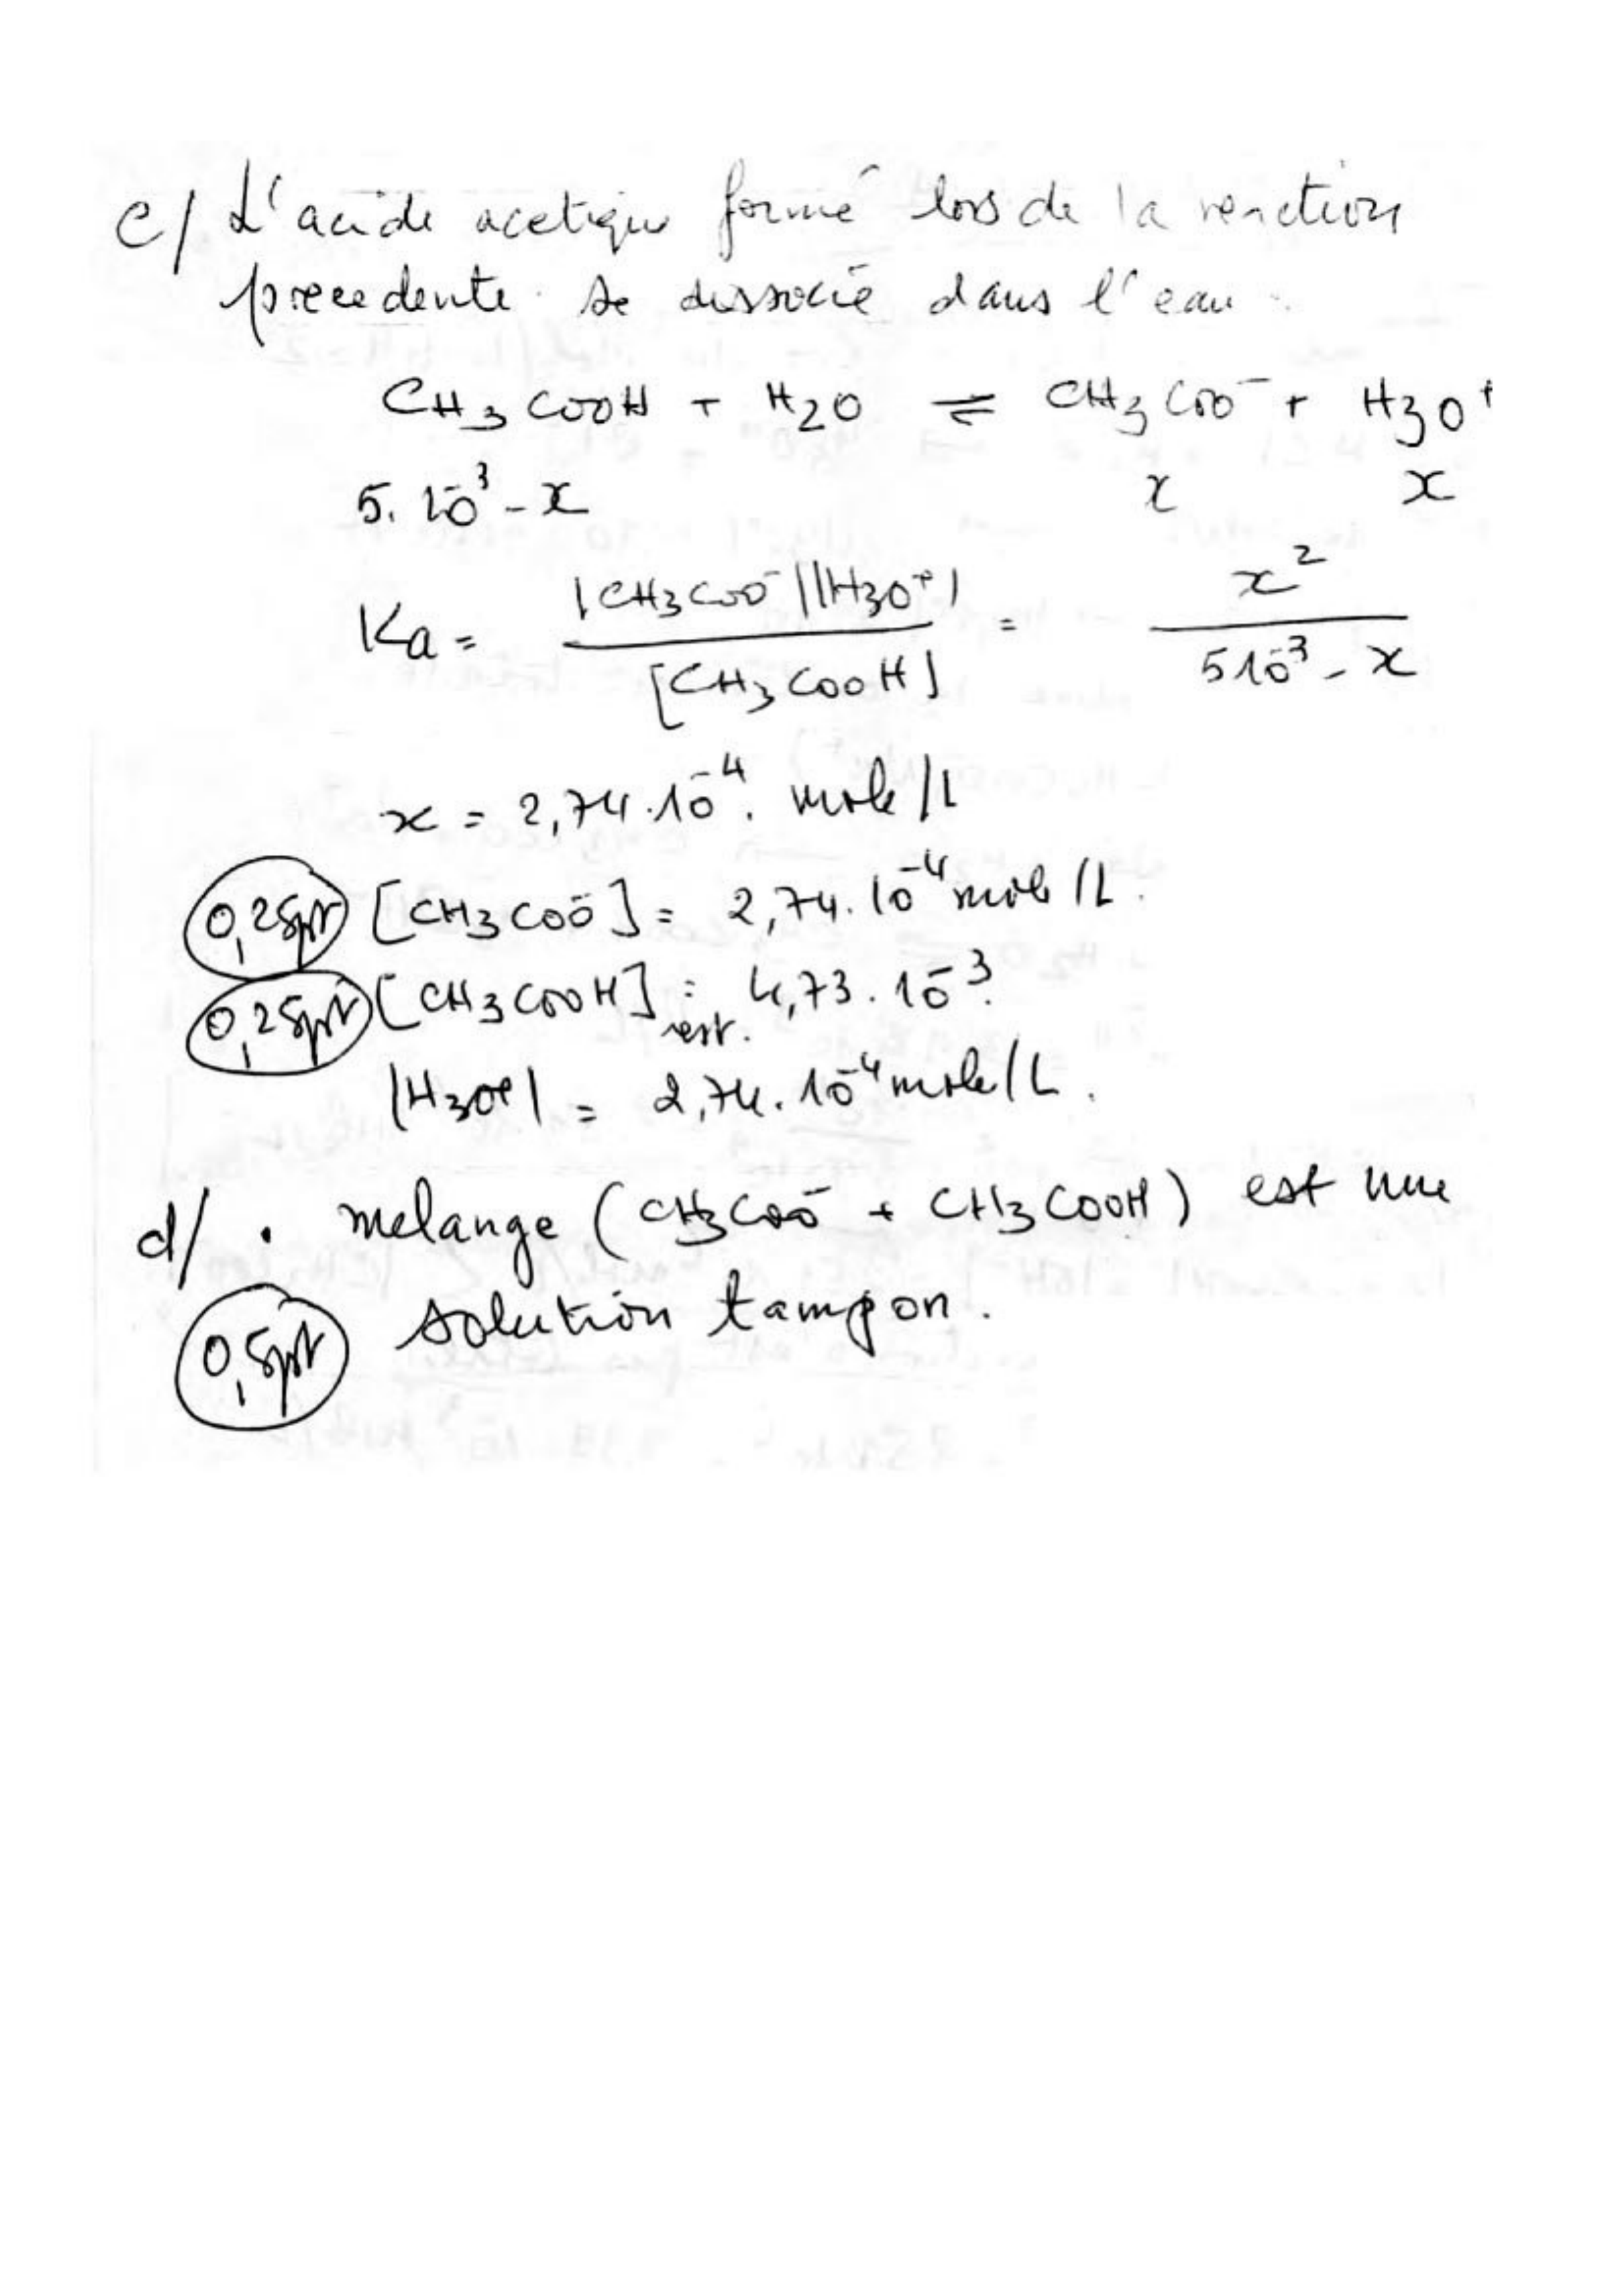 c/ L'acide acetique formé lors de la reaction
precedente se dissocié dans l'eau.
CH3COOH + H2O ⇌ CH3COO⁻ + H3O⁺
5.10⁻³ - x x x
Ka = |CH3COO⁻||H3O⁺| / [CH3COOH] = x² / 5 10⁻³ - x
x = 2,74.10⁻⁴. mole/L
0,25pt [CH3COO⁻] = 2,74.10⁻⁴ mole/L.
0,25pt [CH3COOH]rest. = 4,73.10⁻³.
|H3O⁺| = 2,74.10⁻⁴ mole/L.
d/ . melange (CH3COO⁻ + CH3COOH) est une
0,5pt solution tampon.